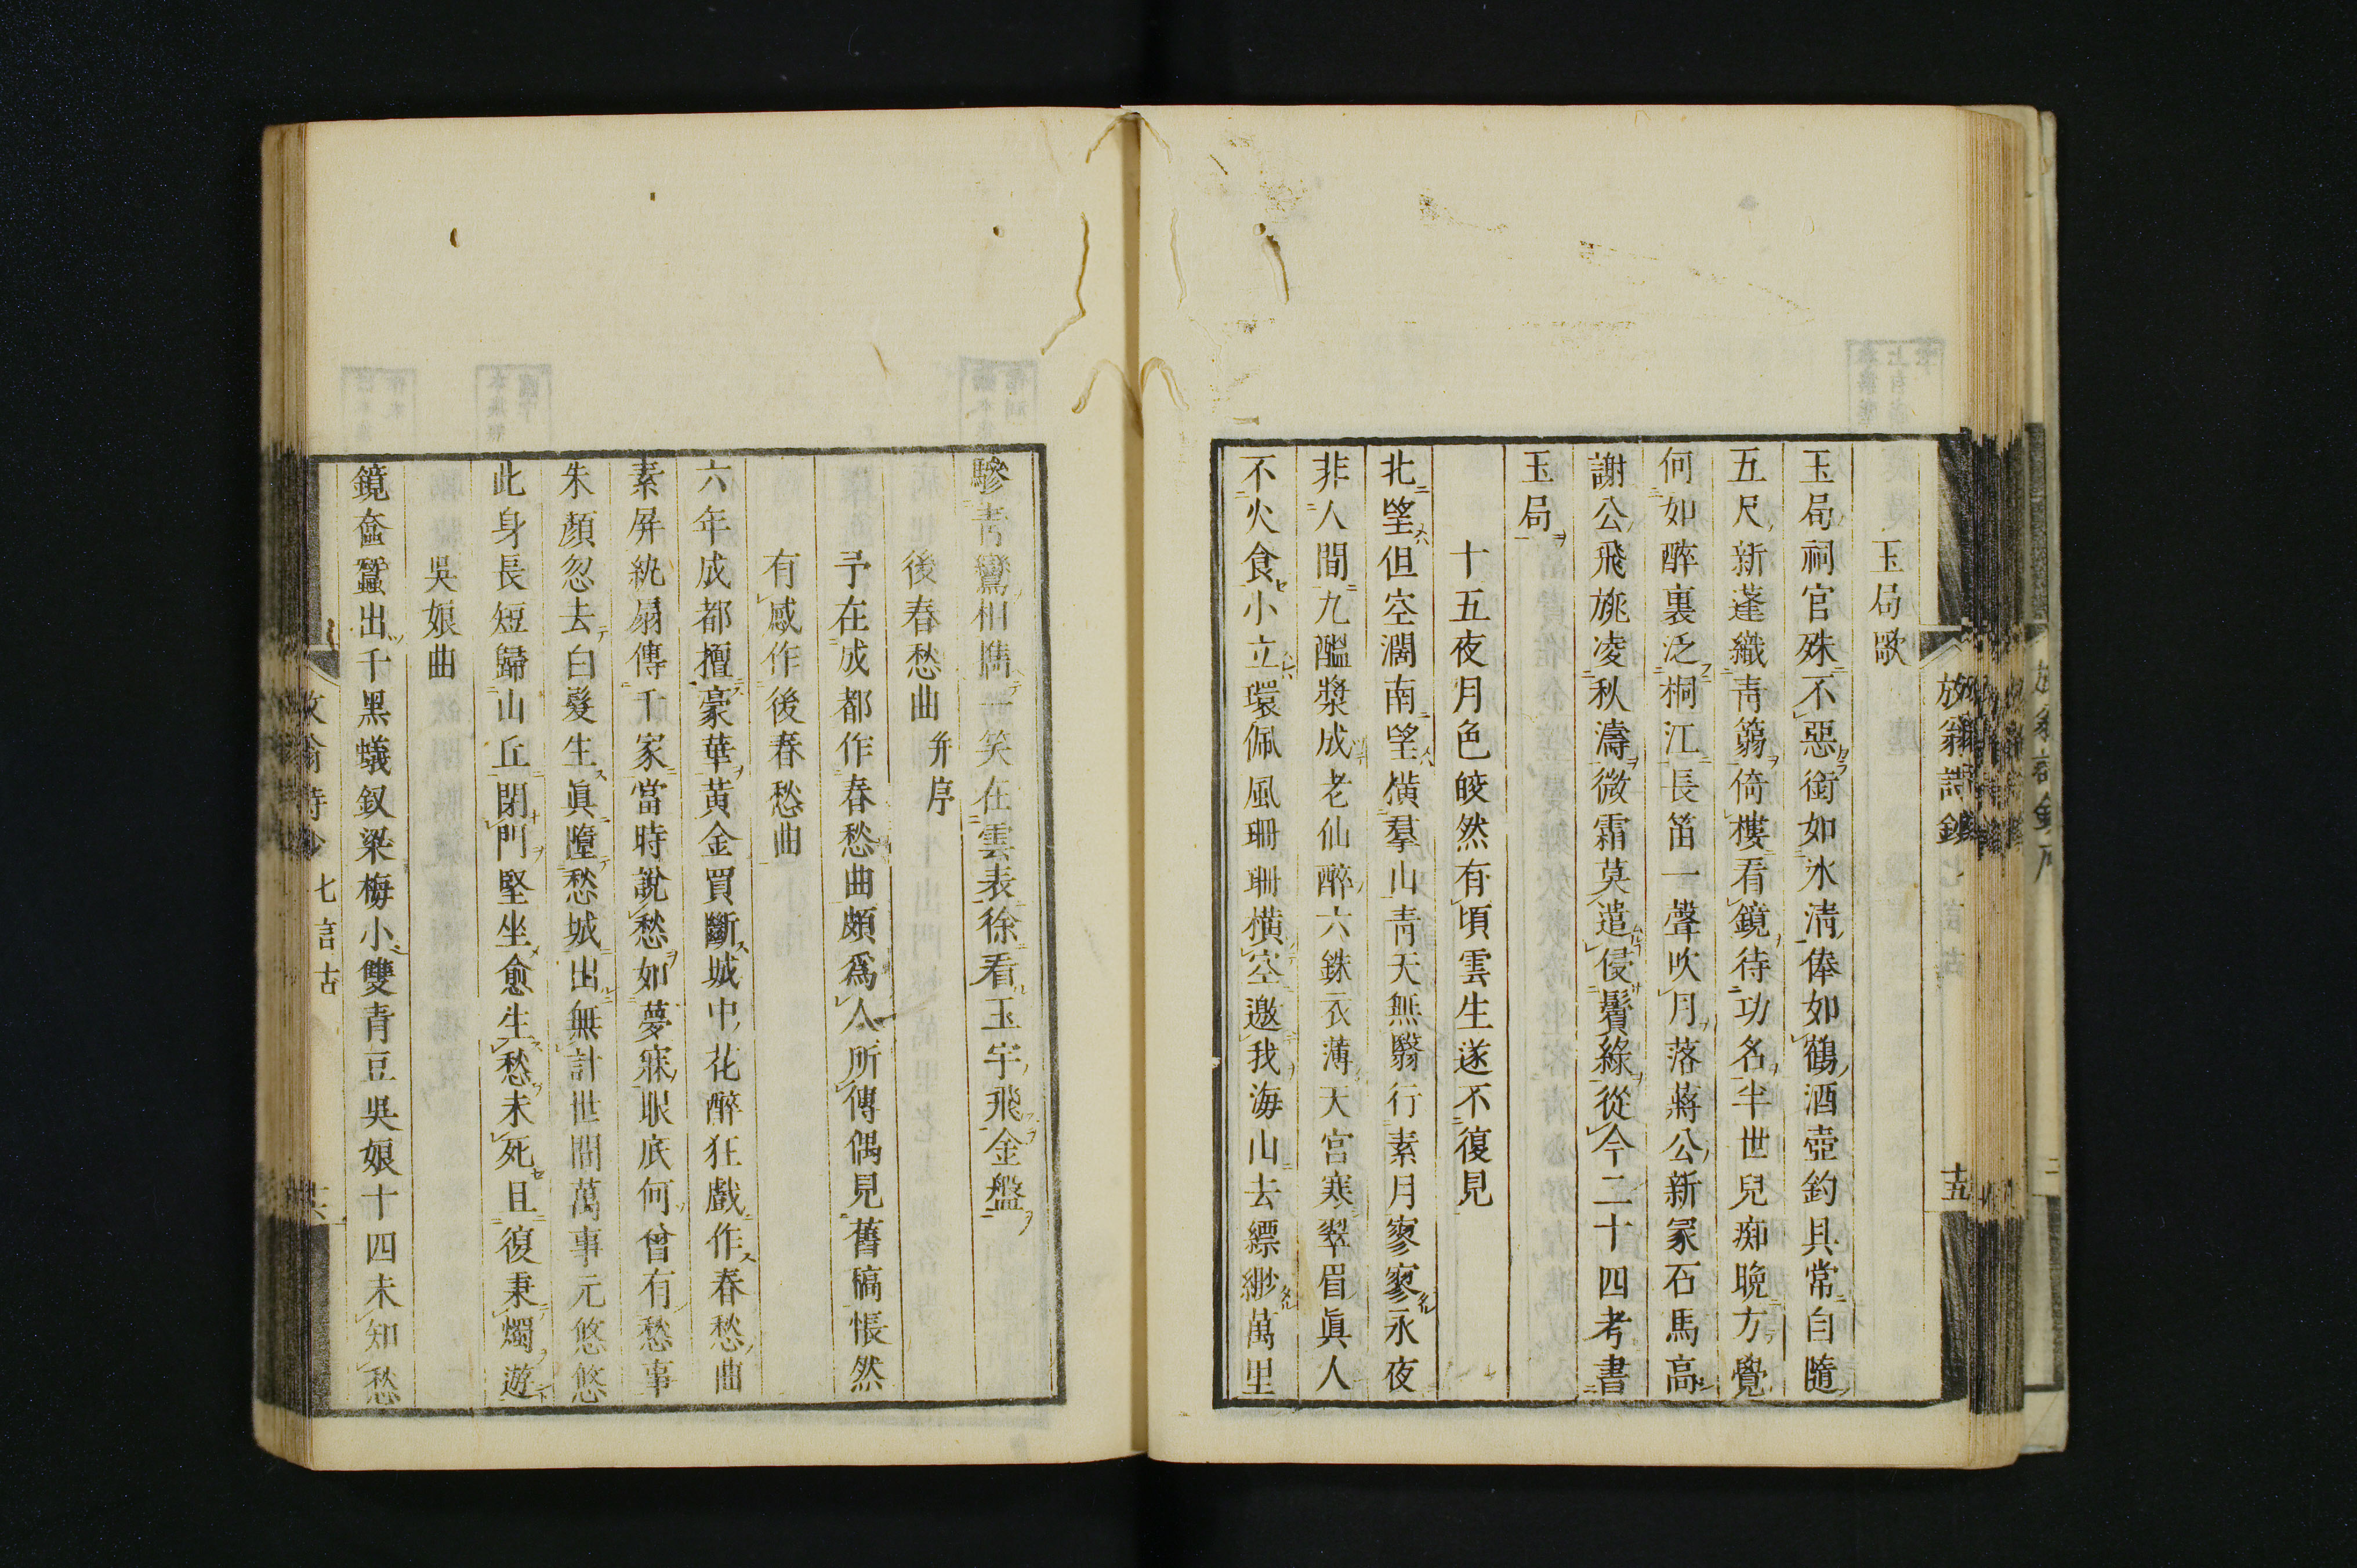 玉局歌
玉局祠官殊不惡銜如氷清俸如鶴酒壺釣具常自隨
五尺新蓬織靑篛倚樓看鏡待功名半世兒痴晚方覺
何如醉裏泛桐江長笛一聲吹月落蔣公新冢石馬高
謝公飛旐凌秋濤微霜莫遣侵鬢綠從今二十四考書
玉局
十五夜月色皎然有頃雲生遂不復見
北望但空濶南望橫羣山靑天無翳行素月寥寥永夜
非人間九醞漿成老仙醉六銖衣薄天宮寒翠眉眞人
不火食小立環佩風珊珊橫空邀我海山去縹緲萬里
驂靑鸞相携一笑在雲表徐看玉宇飛金盤
後春愁曲并序
予在成都作春愁曲頗爲人所傳偶見舊稿悵然
有感作後春愁曲
六年成都擅豪華黃金買斷城中花醉狂戲作春愁曲
素屏紈扇傳千家當時說愁如夢寐眼底何曾有愁事
朱顏忽去白髮生眞墮愁城出無計世間萬事元悠悠
此身長短歸山丘閉門堅坐愈生愁未死且復秉燭遊
吳娘曲
鏡奩蠶出千黑蟻釵梁梅小雙青豆吳娘十四未知愁
放翁詩鈔 七言古